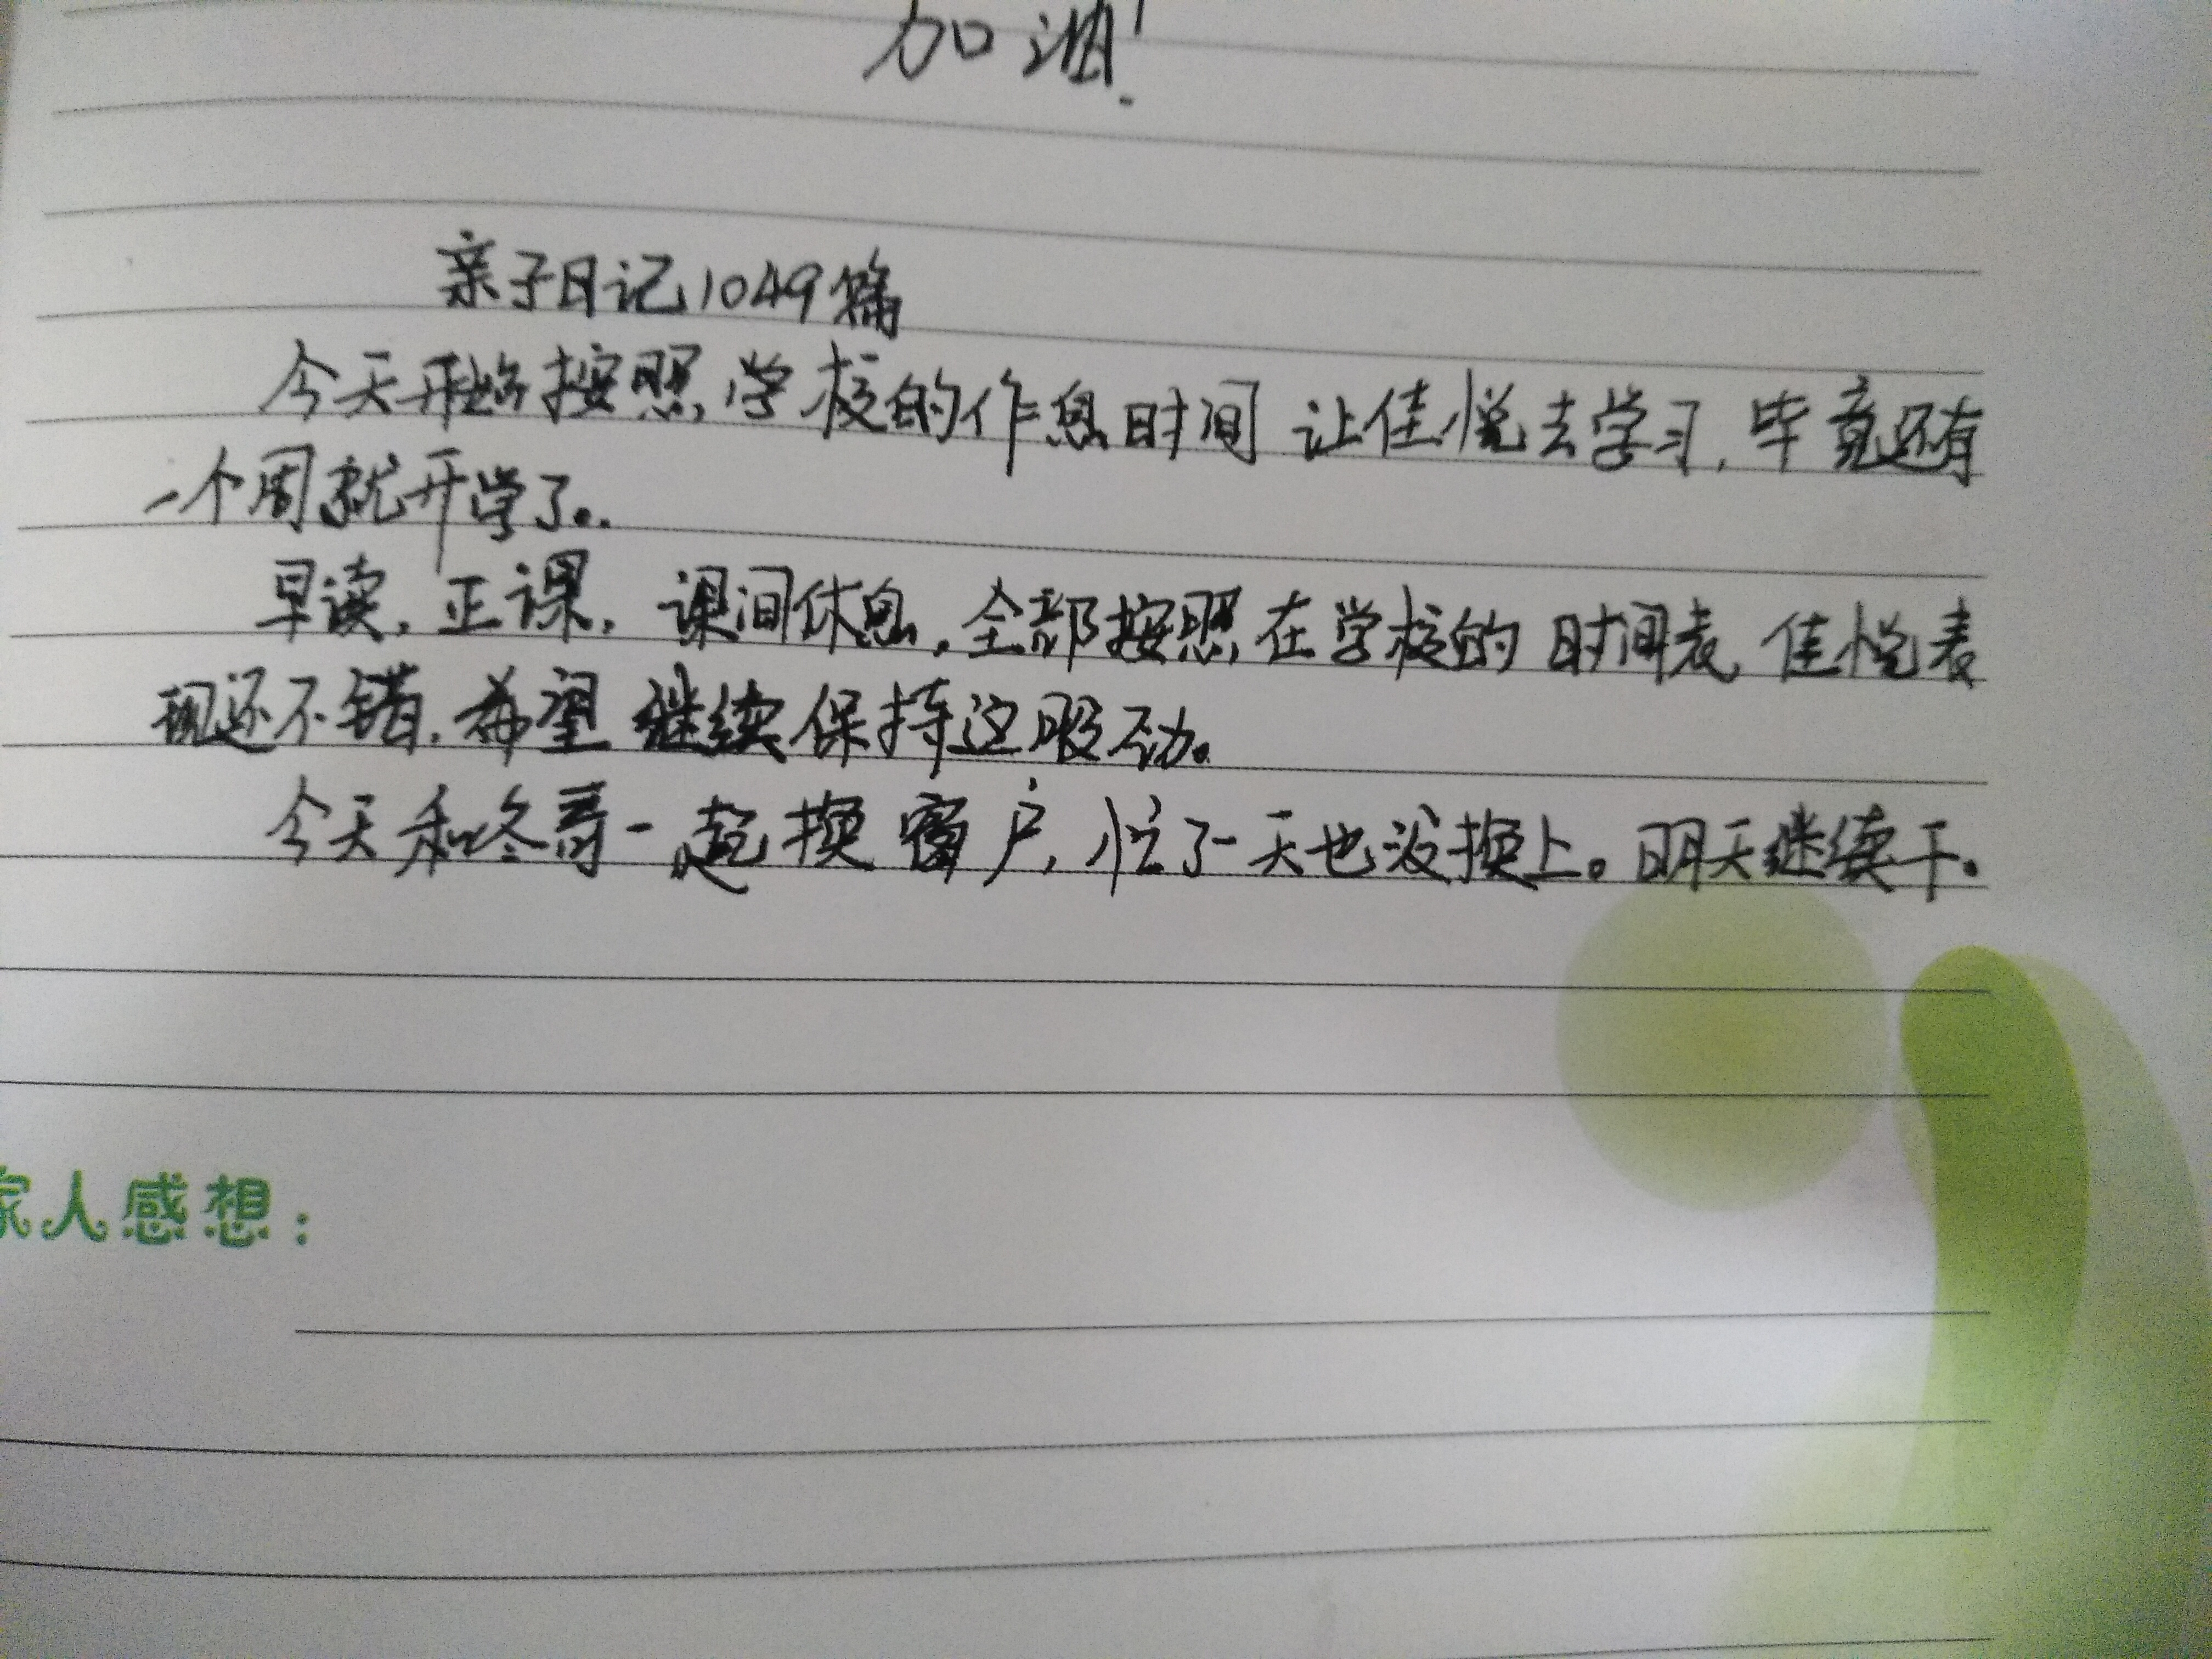 加油!
亲子日记1049篇
今天开始按照学校的作息时间让佳悦去学习,毕竟还有
一个周就开学了。
早读,正课,课间休息,全部按照在学校的时间表,佳悦表
现还不错,希望继续保持这股劲。
今天和冬哥一起换窗户,忙了一天也没换上。明天继续干。
家人感想: